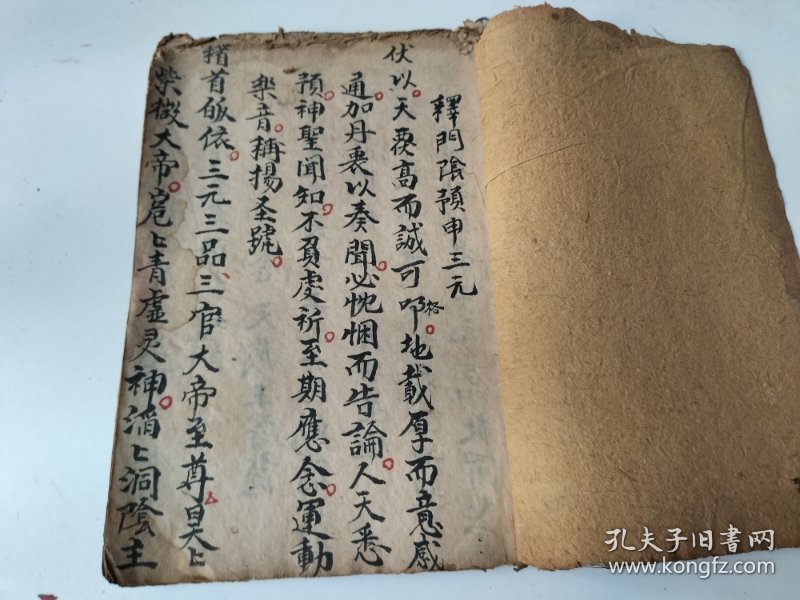 釋門陰預申三元
伏以。天覆高而誠可叩格。地載厚而意感
通。加丹衷以奏聞。必忱悃而告諭。人天悉
預。神聖聞知。不負虔祈。至期應念。運動
樂音。稱揚圣號。
稽首皈依。三元三品、三官大帝至尊。昊匕
紫微大帝。巵匕青虛灵神。湣匕洞陰主
孔夫子旧书网
www.kongfz.com